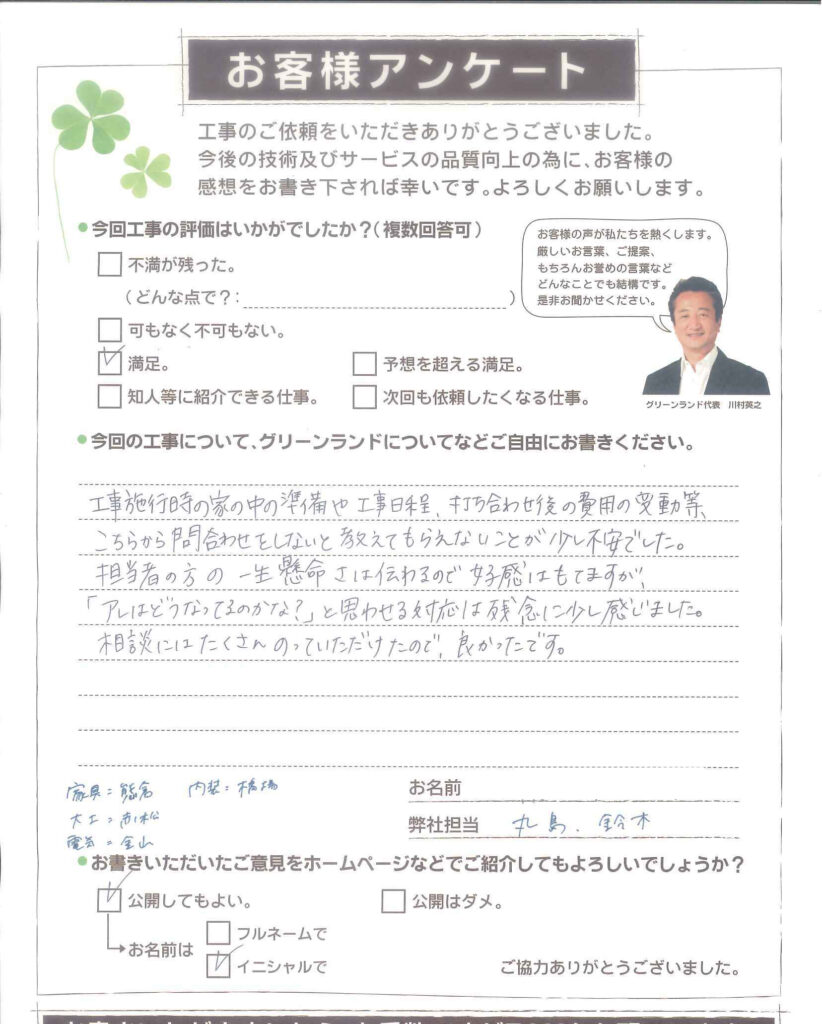 お客様アンケート
工事のご依頼をいただきありがとうございました。
今後の技術及びサービスの品質向上の為に、お客様の
感想をお書き下されば幸いです。よろしくお願いします。
●今回工事の評価はいかがでしたか？（複数回答可）
不満が残った。
（どんな点で？：　）
可もなく不可もない。
満足。
予想を超える満足。
知人等に紹介できる仕事。
次回も依頼したくなる仕事。
お客様の声が私たちを熱くします。
厳しいお言葉、ご提案、
もちろんお誉めの言葉など
どんなことでも結構です。
是非お聞かせください。
グリーンランド代表　川村英之
●今回の工事について、グリーンランドについてなどご自由にお書きください。
工事施行時の家の中の準備や工事日程、打ち合わせ後の費用の変動等、
こちらから問合わせをしないと教えてもらえないことが少し不安でした。
担当者の方の一生懸命さは伝わるので好感はもてますが、
「アレはどうなってるのかな？」と思わせる対応は残念に少し感じました。
相談にはたくさんのっていただけたので、良かったです。
家具：熊倉　内装：橋場
大工：赤松
電気：金山
お名前
弊社担当　丸島、鈴木
●お書きいただいたご意見をホームページなどでご紹介してもよろしいでしょうか？
公開してもよい。
公開はダメ。
お名前は
フルネームで
イニシャルで
ご協力ありがとうございました。